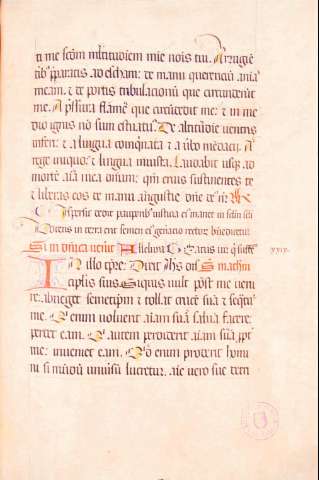 ti me scđm mĺtitudinem mie nois tui. A rugiē
tib' pparatis ad escham: de manu querencīu aīa
meam. et de portis tribulacionū que circundeđūt
me. A pssura flāme que circūdedit me: et in me
dio ignis nō sum estuatus. De altitudie ventris
inferi: et a lingua coinqnata et a ūbo mēdacij. A
rege iniquo: et lingua iniusta. Laudabit usqȝ ad
mortē aīa mea dnūm: qm eruis sustinentes te
et liberas eos de manu angustie dne đs nr̄ R
Dispersit dedit paupibus iustitia eius manet in sclm scli
Potens in terra erit semen eius generacio rectoȝ bñdicetur
Si in dnica venīt Alleluia Beatus vir q suffert xxiv.
In illo tpre: Dixit ihs discipulis suis. Siquis vult post me veni
re. abneget semetipm et tollat crucē suā et sequat̄
me. Q̄ enim voluerit aīam suā saluā facere:
perdet eam. Q̄ autem perdiderit aīam suā ppt
me: inueniet eam. Quid enim prodest homi
ni si mūdū unīusū lucretur. aīe vero sue detri